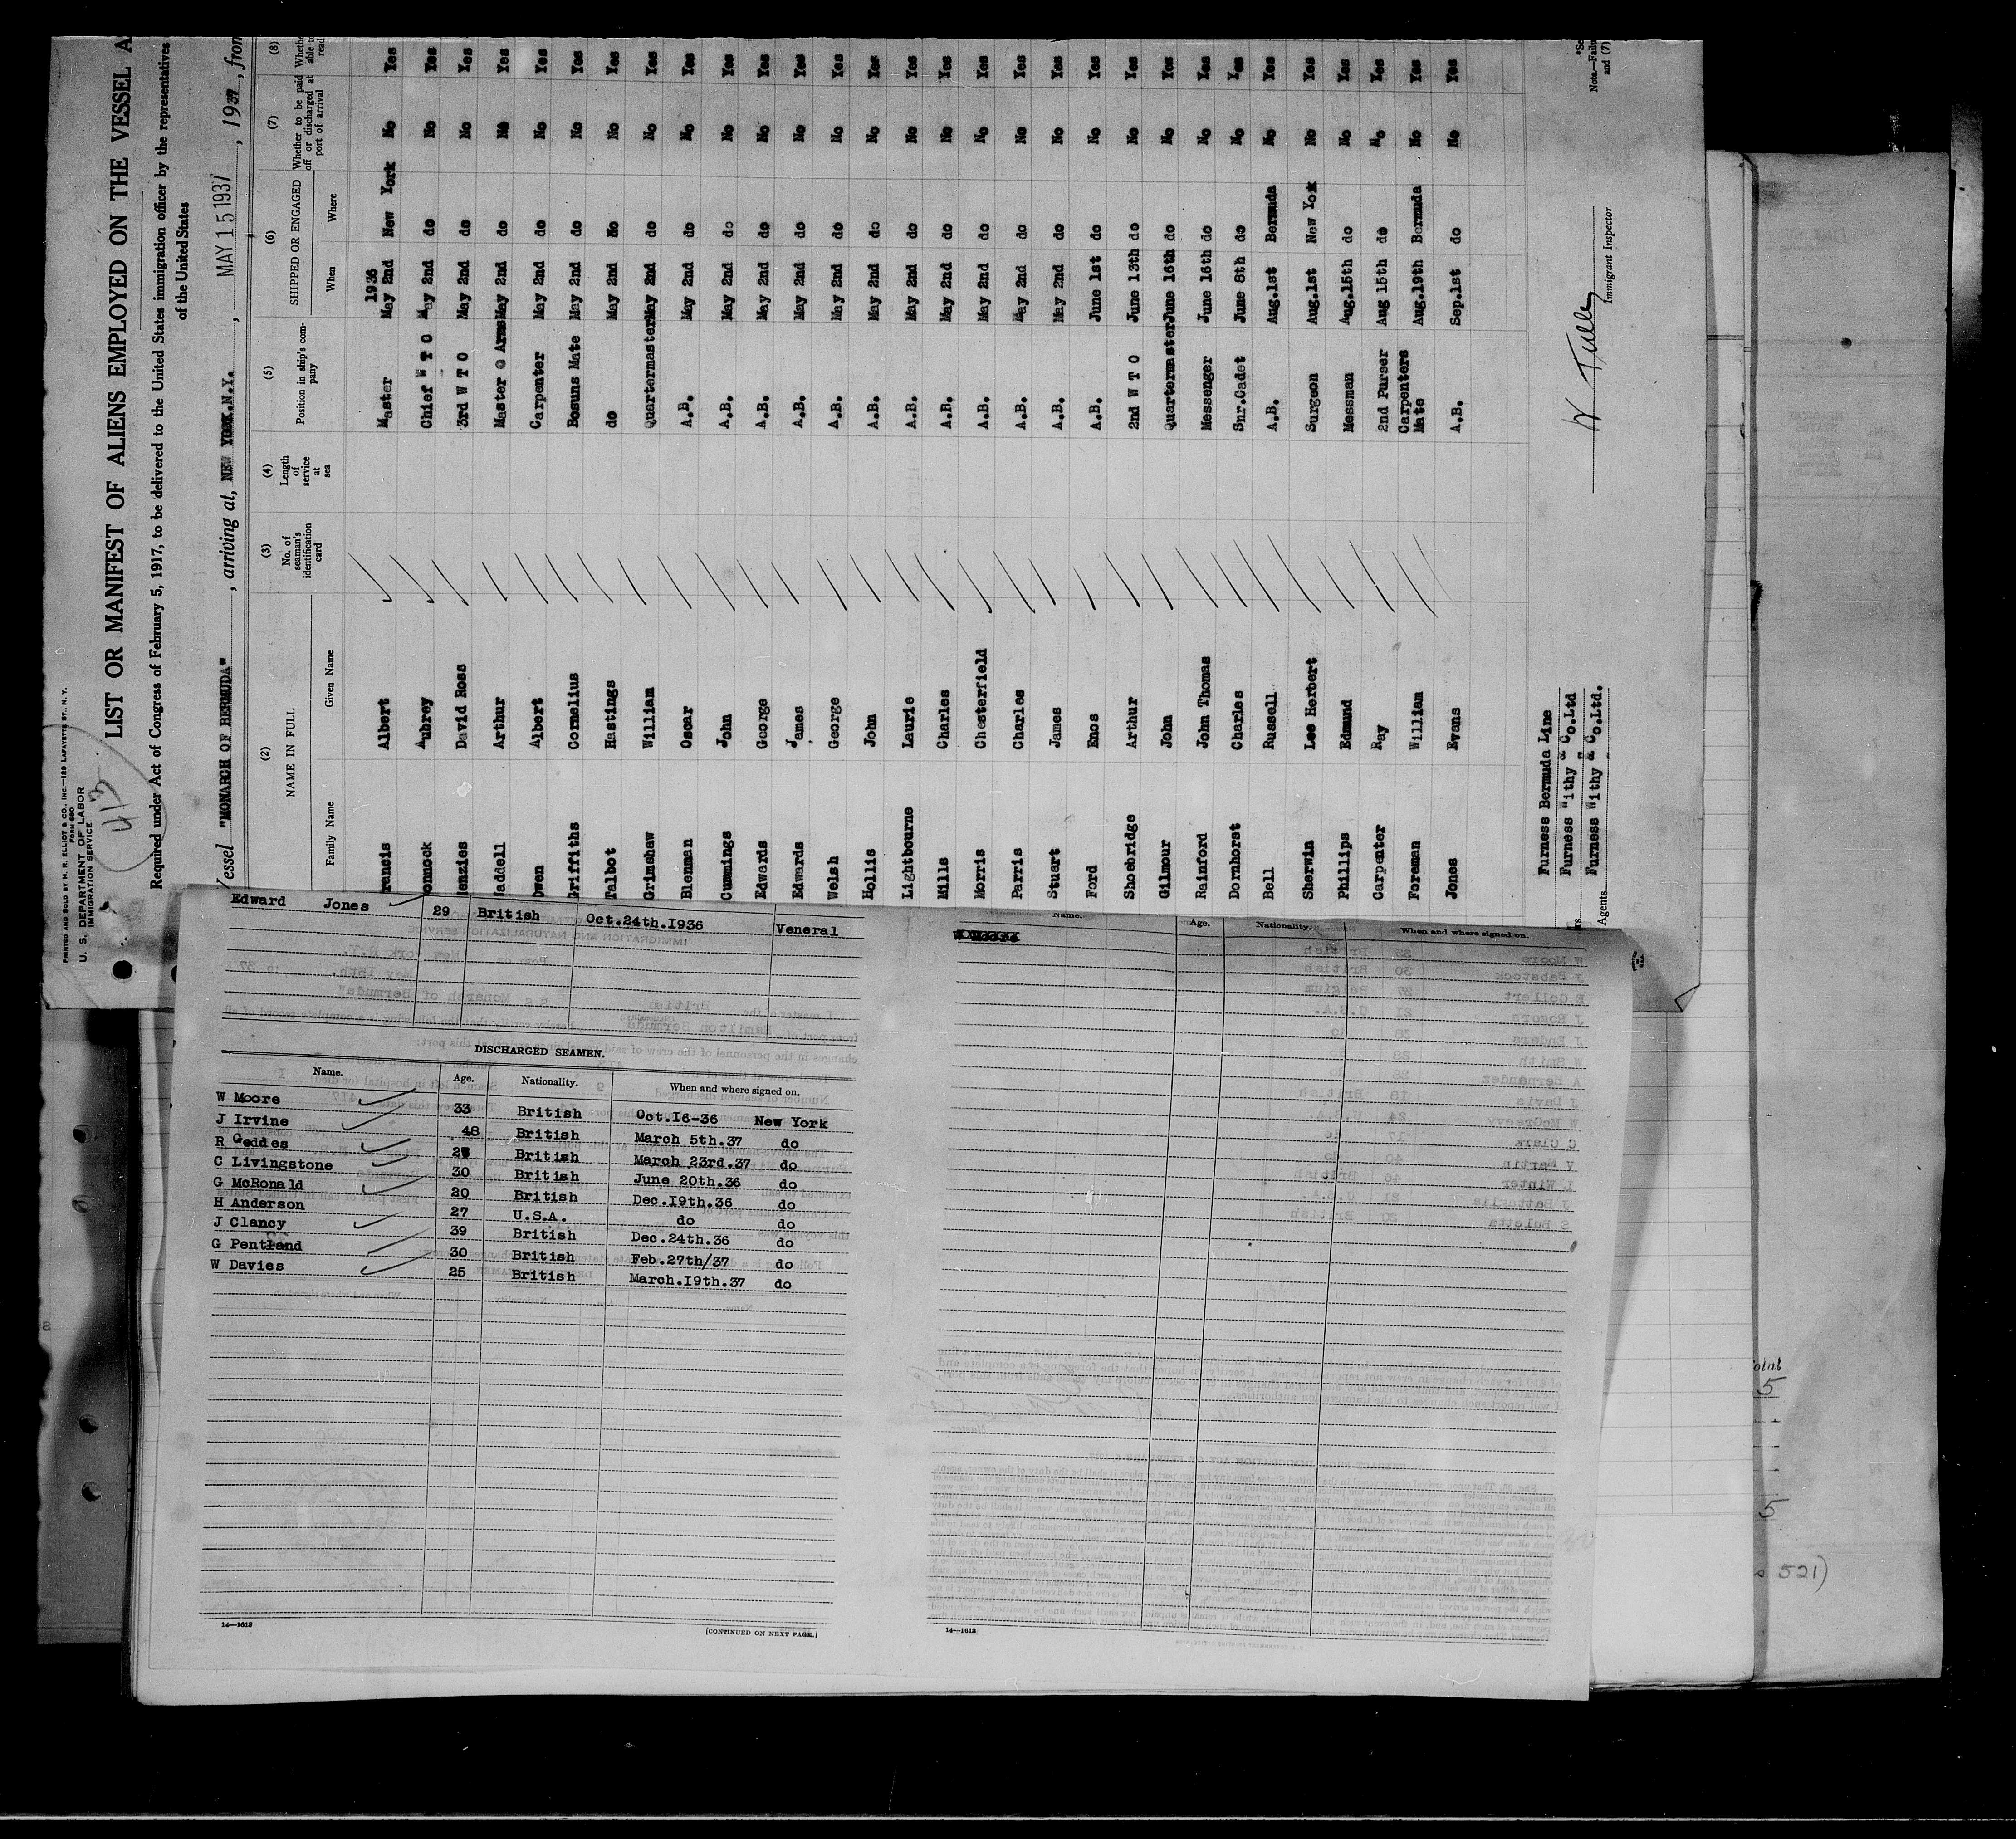 PRINTED AND SOLD BY M. R. ELLIOT & CO., INC.—129 LAFAYETTE ST., N. Y.
FORM 680
U. S. DEPARTMENT OF LABOR
IMMIGRATION SERVICE
413
LIST OR MANIFEST OF ALIENS EMPLOYED ON THE VESSEL A
Required under Act of Congress of February 5, 1917, to be delivered to the United States immigration officer by the representatives
of the United States
Vessel "MONARCH OF BERMUDA", arriving at, NEW YORK.N.Y., MAY 15 1937, 1937, from
(2) (3) (4) (5) (6) (7) (8)
NAME IN FULL No. of seaman's identification card Length of service at sea Position in ship's company SHIPPED OR ENGAGED Whether to be paid off or discharged at port of arrival
Family Name Given Name When Where
1936
rancis Albert Master May 2nd New York No Yes
onnock Aubrey Chief W T O May 2nd do No Yes
enzies David Ross 3rd W T O May 2nd do No Yes
addell Arthur Master O Arms May 2nd do No Yes
Owen Albert Carpenter May 2nd do No Yes
Griffiths Cornelius Bosuns Mate May 2nd do No Yes
Talbot Hastings do May 2nd do No Yes
Grimshaw William Quartermaster May 2nd do No Yes
Blenman Oscar A.B. May 2nd do No Yes
Cummings John A.B. May 2nd do No Yes
Edwards George A.B. May 2nd do No Yes
Edwards James A.B. May 2nd do No Yes
Welsh George A.B. May 2nd do No Yes
Hollis John A.B. May 2nd do No Yes
Lightbourne Laurie A.B. May 2nd do No Yes
Mills Charles A.B. May 2nd do No Yes
Morris Chesterfield A.B. May 2nd do No Yes
Parris Charles A.B. May 2nd do No Yes
Stuart James A.B. May 2nd do No Yes
Ford Enos A.B. June 1st do No Yes
Shoebridge Arthur 2nd W T O June 13th do No Yes
Gilmour John Quartermaster June 16th do No Yes
Rainford John Thomas Messenger June 16th do No Yes
Dornhorst Charles Snr.Cadet June 8th do No Yes
Bell Russell A.B. Aug.1st Bermuda No Yes
Sherwin Lee Herbert Surgeon Aug.1st New York No Yes
Phillips Edmund Messman Aug.15th do No Yes
Carpenter Ray 2nd Purser Aug 15th do No Yes
Foreman William Carpenters Mate Aug.19th Bermuda No Yes
Jones Evans A.B. Sep.1st do No Yes
Furness Bermuda Line
Furness Withy & Co.Ltd
Agents Furness Withy & Co.Ltd.
W Tully
Immigrant Inspector
Note.—Failu
and (7)
Edward Jones 29 British Oct.24th.1936 Veneral
DISCHARGED SEAMEN.
Name. Age. Nationality. When and where signed on.
W Moore 33 British Oct.16-36 New York
J Irvine 48 British March 5th.37 do
R Geddes British March 23rd.37 do
C Livingstone 30 British June 20th.36 do
G McRonald 20 British Dec.19th.36 do
H Anderson 27 U.S.A. do do
J Clancy 39 British Dec.24th.36 do
G Pentland 30 British Feb.27th/37 do
W Davies 25 British March.19th.37 do
14—1612
[CONTINUED ON NEXT PAGE.]
Name. Age. Nationality. When and where signed on.
W Moore
14—1612
otal
5
5
521)